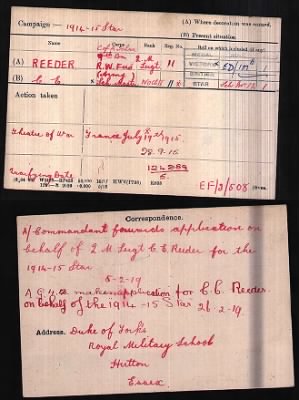 Campaign :— 1914-15 Star
(A) Where decoration was earned.
(B) Present situation.
Name Corps Rank Reg. No.
Roll on which included (if any)
(A) REEDER
R.W. Fus Sergt 11
VICTORY
(B) C. E.
STAR
Action taken
Theatre of War France July 19th 1915.
28.9.15
EF/3/508
Correspondence.
A/Commandant forwards application on
behalf of Q M Sergt C E Reeder for the
1914-15 Star
5-2-19
A.G.4.a. makes application for C.E. Reeder
on behalf of the 1914-15 Star 26-2-19.
Address. Duke of York's
Royal Military School
Hutton
Essex